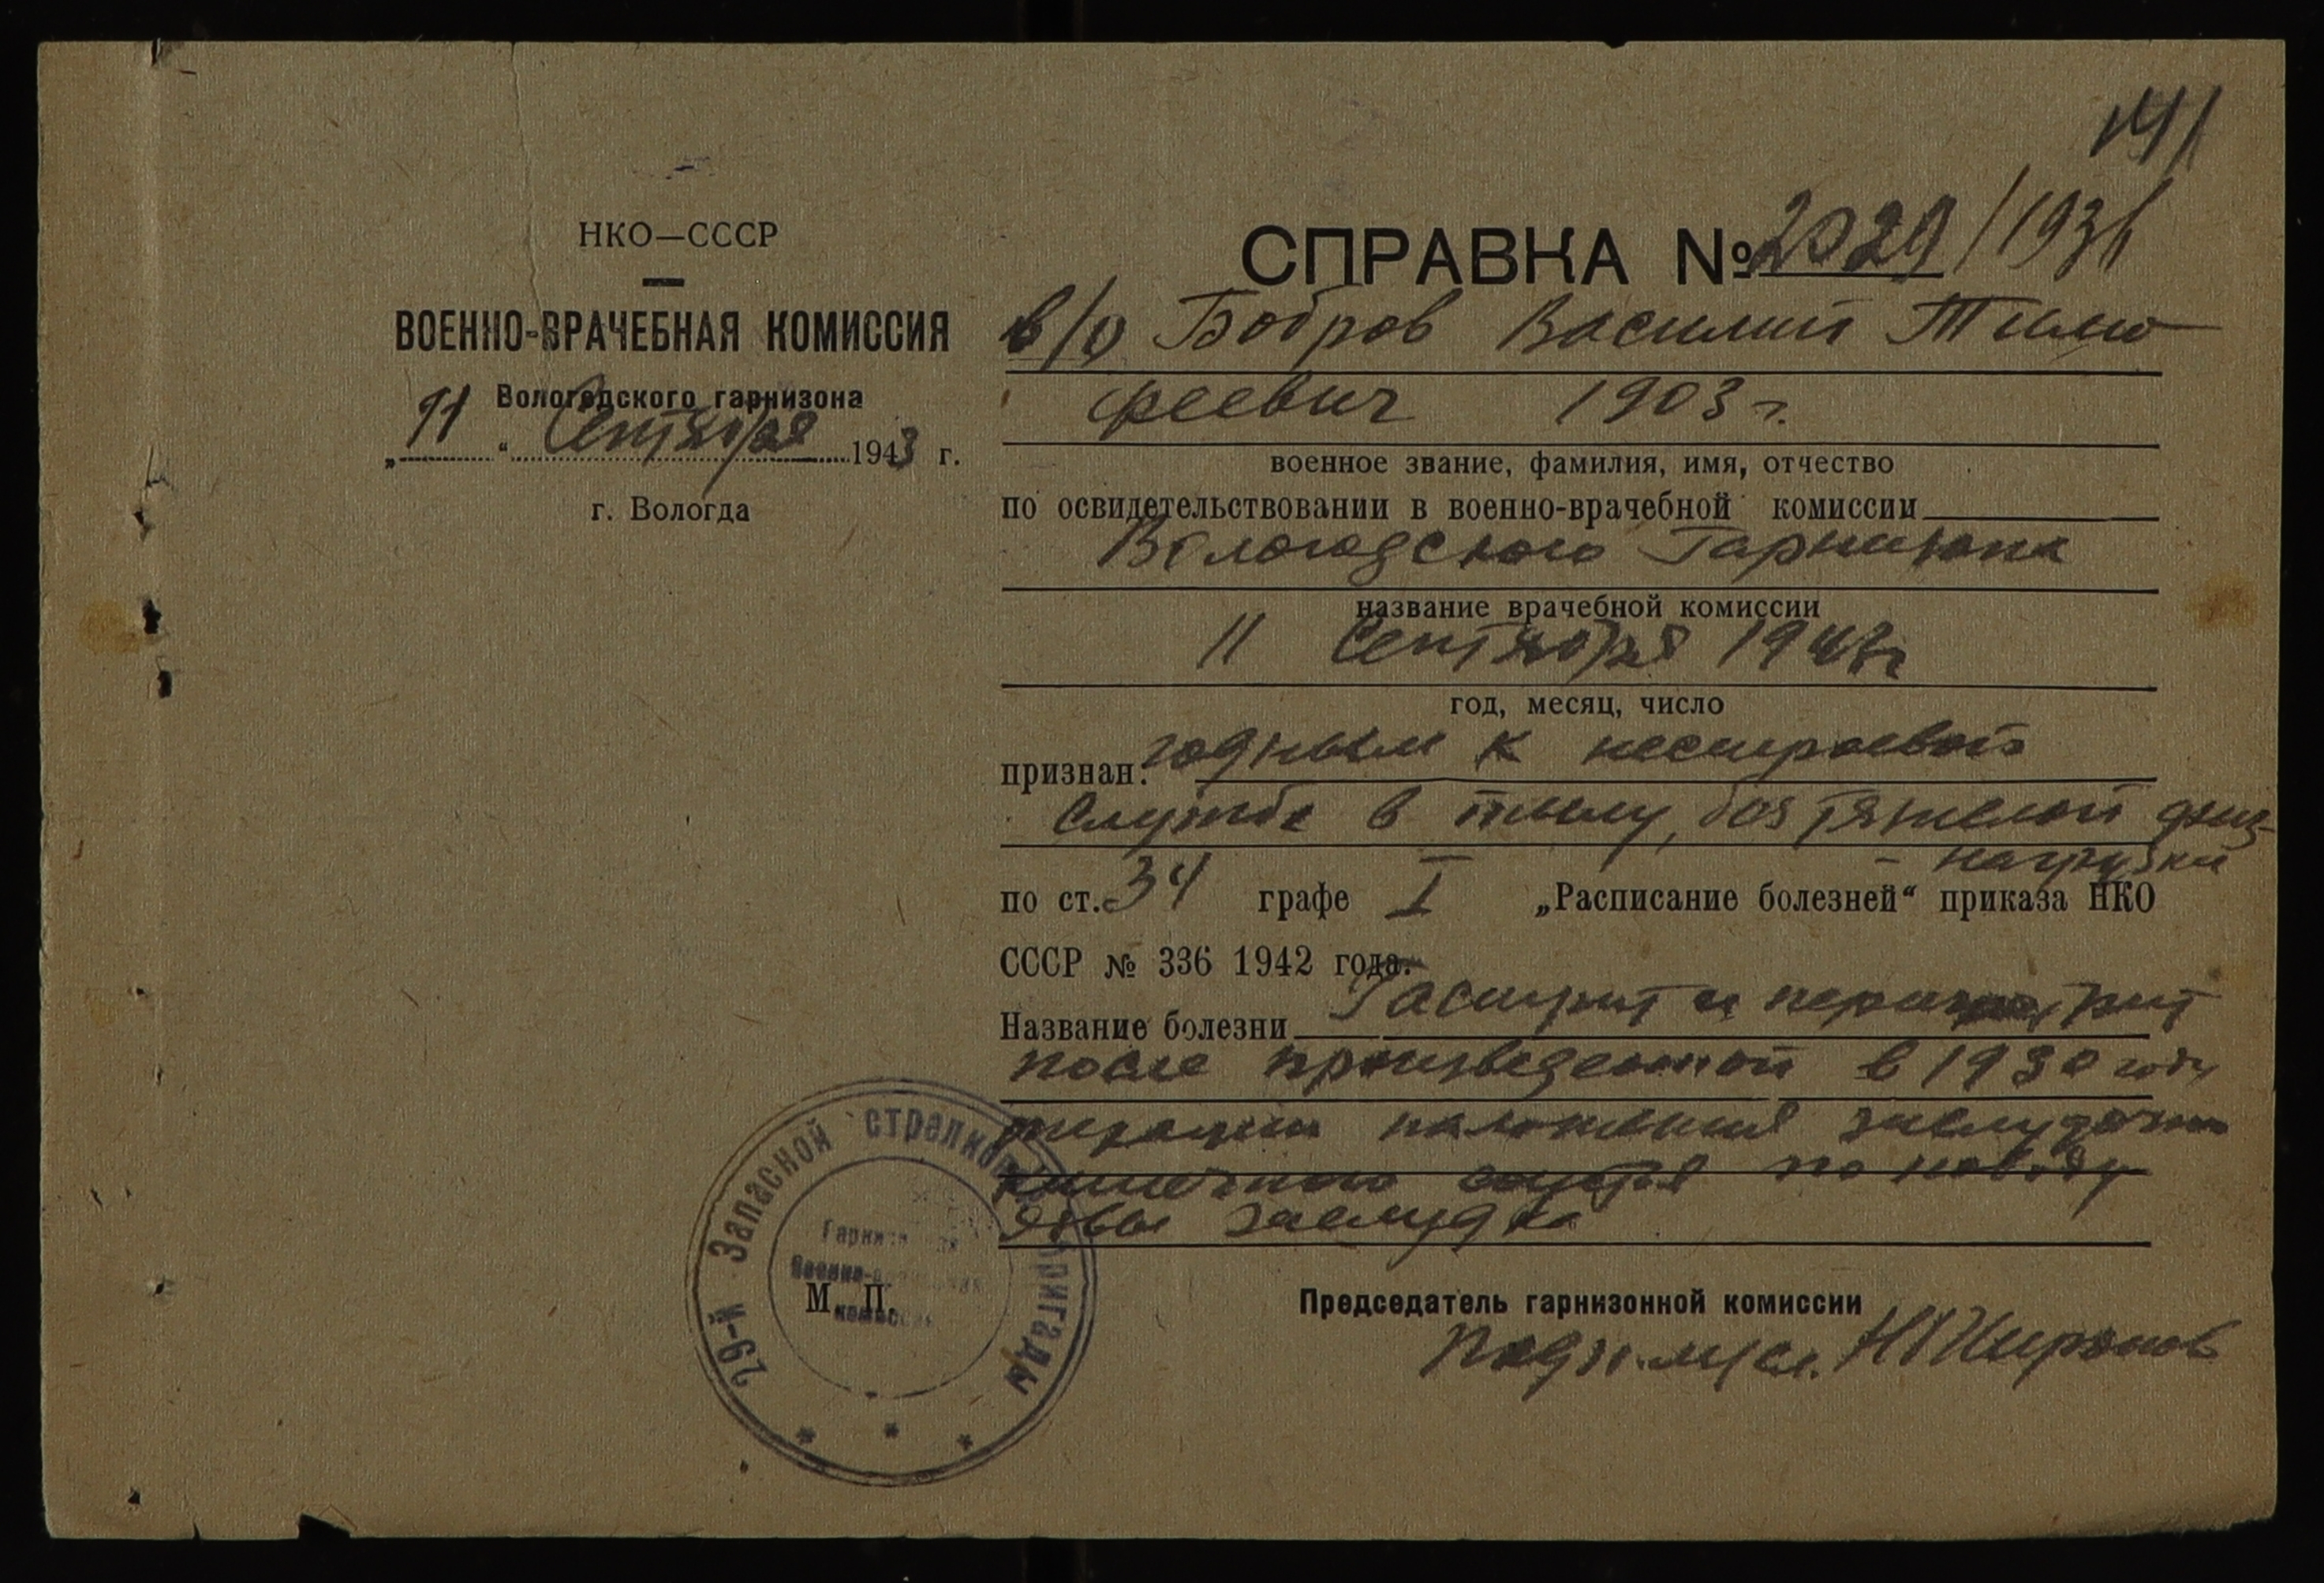 141
НКО—СССР
ВОЕННО-ВРАЧЕБНАЯ КОМИССИЯ
Вологодского гарнизона
„ 11 “ Сентября 1943 г.
г. Вологда
СПРАВКА № 2029/1931
в/о Бобров Василий Тимо
феевич 1903 г.
военное звание, фамилия, имя, отчество
по освидетельствовании в военно-врачебной комиссии
Вологодского Гарнизона
название врачебной комиссии
11 Сентября 1943 г
год, месяц, число
признан: годным к нестроевой
службе в тылу, без тяжелой физ-
нагрузки
по ст. 34 графе I „Расписание болезней“ приказа НКО
СССР № 336 1942 года.
Название болезни Гастрит и
после произведенной в 1930 году
операции наложения желудочно
кишечного соустья по поводу
язвы желудка
29-й Запасной стрелковой бригады
М. П.
Председатель гарнизонной комиссии